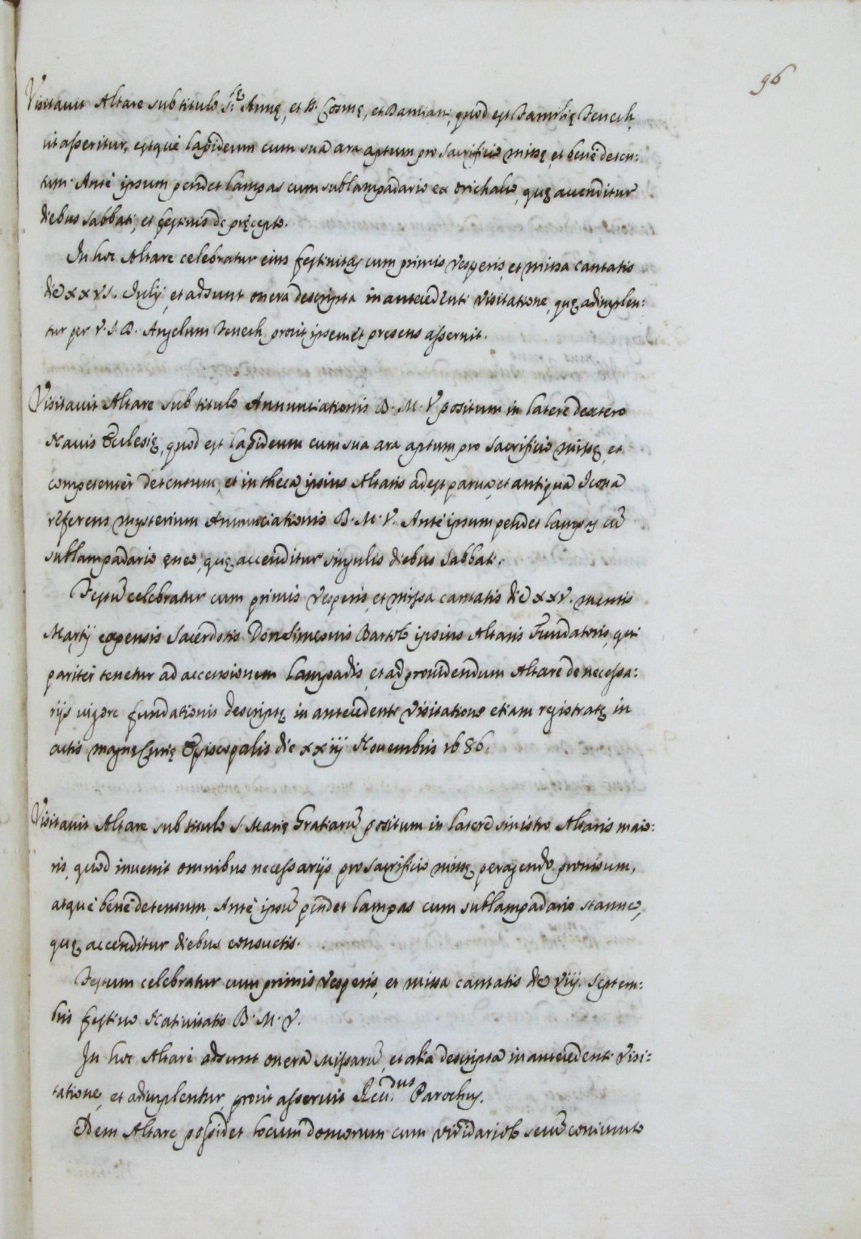 96
Visitavit Altare sub titulo S.tę Annę, et SS. Cosmę, et Damiani, quod est Familię Zenech,
ut asseritur, estque lapideum cum sua ara aptum pro Sacrificio missę, et bene deten:
tum. Ante ipsum pendet lampas cum sublampadario ex orichalco, quę accenditur
diebus Sabbati, et festivis de pręcepto.
In hoc Altare celebratur eius festivitas cum primis Vesperis, et missa cantatis
die XXVI. Julij, et adsunt onera descripta in antecedenti Visitatione, quę adimplen:
tur per V.J.D. Angelum Zenech, prout ipsemet pręsens asseruit.
Visitavit Altare sub titulo Annunciationis B. M. V. positum in latere dextero
Navis Ecclesię, quod est lapideum cum sua ara aptum pro Sacrificio missę, et
competenter detentum, et in theca ipsius Altaris adest parva, et antiqua Icona
referens mysterium Annunciationis B. M. V. Ante ipsum pendet lampas cũ
sublampadario ęneo, quę accenditur singulis diebus Sabbati.
Festũ celebratur cum primis Vesperis, et missa cantatis die XXV. mensis
Martij expensis Sacerdotis Don Simeonis Bartolo ipsius Altaris Fundatoris, qui
pariter tenetur ad accensionem lampadis, et ad providendum Altare de necessa:
rijs vigore fundationis descriptę in antecedenti Visitatione etiam registratę in
actis magnę Curię Episcopalis die XXiij Novembris 1686.
Visitavit Altare sub titulo S. Marię Gratiarũ positum in latere sinistro Altaris maio:
ris, quod invenit omnibus necessarijs pro Sacrificio missę peragendo provisum,
atque bene detentum. Ante ipsũ pendet lampas cum sublampadario stanneo,
quę accenditur diebus consuetis.
Festum celebratur cum primis Vesperis, et missa cantatis die Viij. Septem:
bris festivo Nativitatis B. M. V.
In hoc Altari adsunt onera Missarũ, et alia descripta in antecedenti Visi:
tatione, et adimplentur prout asseruit Reu.dus Parochus.
Idem Altare possidet locum domorum cum viridariolo seu